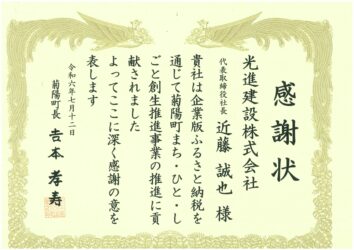 感謝状
光進建設株式会社
代表取締役社長 近藤誠也様
貴社は企業版ふるさと納税を
通じて菊陽町まち・ひと・し
ごと創生推進事業の推進に貢
献されました
よってここに深く感謝の意を
表します
令和六年七月十二日
菊陽町長 吉本孝寿